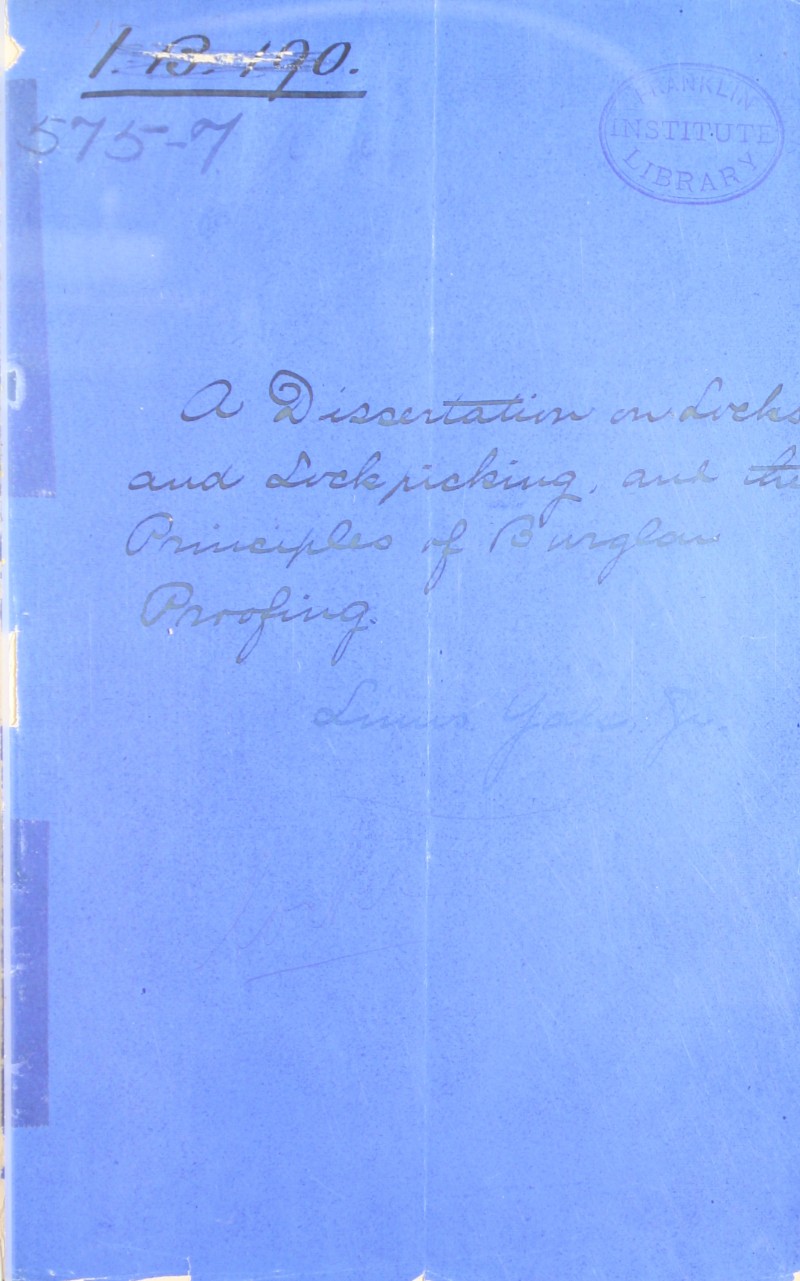 1.B.190.
575-7
FRANKLIN
INSTITUTE
LIBRARY
A Dissertation on Locks
and Lockpicking, and the
Principles of Burglar
Proofing.
Linus Yale, Jr.